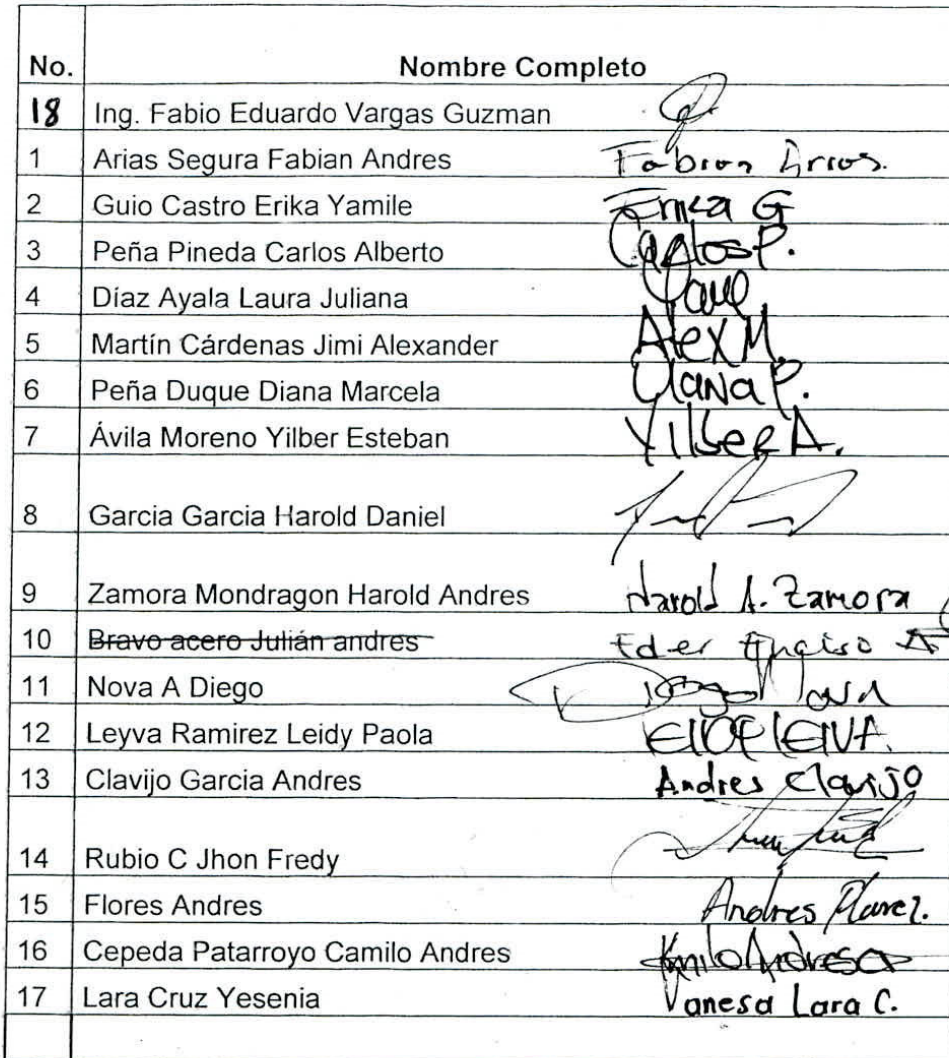 No. Nombre Completo
18 Ing. Fabio Eduardo Vargas Guzman
1 Arias Segura Fabian Andres Fabian Arias.
2 Guio Castro Erika Yamile Erika G
3 Peña Pineda Carlos Alberto Carlos P.
4 Díaz Ayala Laura Juliana
5 Martín Cárdenas Jimi Alexander Alex M.
6 Peña Duque Diana Marcela Diana P.
7 Ávila Moreno Yilber Esteban Yilber A.
8 Garcia Garcia Harold Daniel
9 Zamora Mondragon Harold Andres Harold A. Zamora
10 Bravo acero Julián andres Eder
11 Nova A Diego Diego Nova
12 Leyva Ramirez Leidy Paola
13 Clavijo Garcia Andres Andres Clavijo
14 Rubio C Jhon Fredy
15 Flores Andres Andres
16 Cepeda Patarroyo Camilo Andres
17 Lara Cruz Yesenia Vanesa Lara C.